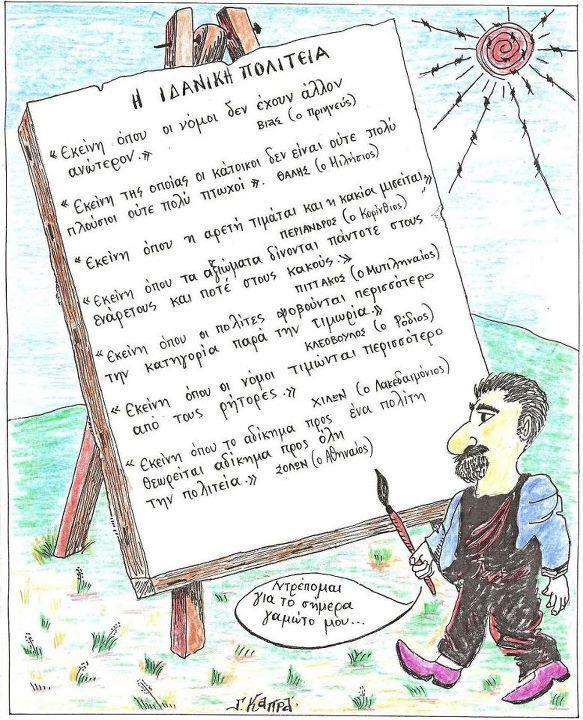 Η ΙΔΑΝΙΚΗ ΠΟΛΙΤΕΙΑ
« Εκείνη όπου οι νόμοι δεν έχουν άλλον
ανώτερον.» ΒΙΑΣ (ο Πριηνεύς)
« Εκείνη της οποίας οι κάτοικοι δεν είναι ούτε πολύ
πλούσιοι ούτε πολύ πτωχοί ». ΘΑΛΗΣ (ο Μιλήσιος)
« Εκείνη όπου η αρετή τιμάται και η κακία μισείται»
ΠΕΡΙΑΝΔΡΟΣ (ο Κορίνθιος)
« Εκείνη όπου τα αξιώματα δίνονται πάντοτε στους
ενάρετους και ποτέ στους κακούς.»
ΠΙΤΤΑΚΟΣ (ο Μυτιληναίος)
« Εκείνη όπου οι πολίτες φοβούνται περισσότερο
την κατηγορία παρά την τιμωρία.»
ΚΛΕΟΒΟΥΛΟΣ (ο Ρόδιος)
« Εκείνη όπου οι νόμοι τιμώνται περισσότερο
από τους ρήτορες.» ΧΙΛΩΝ (ο Λακεδαιμόνιος)
« Εκείνη όπου το αδίκημα προς ένα πολίτη
θεωρείται αδίκημα προς όλη
την πολιτεία.» ΣΟΛΩΝ (ο Αθηναίος)
Ντρέπομαι
για το σημερα
γαμώτο μου...
Γ. ΚΑΠΡΑΣ